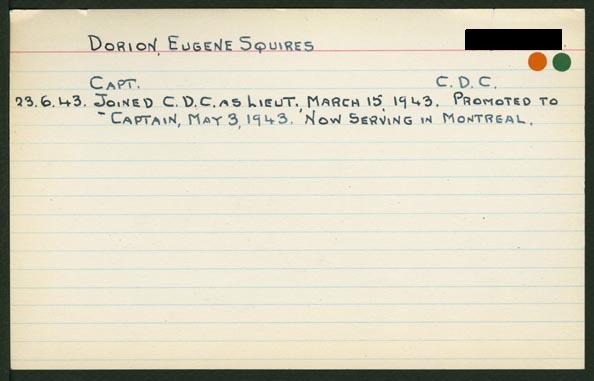 DORION, EUGENE SQUIRES
CAPT. C.D.C.
23.6.43. JOINED C.D.C. AS LIEUT., MARCH 15, 1943. PROMOTED TO
CAPTAIN, MAY 3, 1943. NOW SERVING IN MONTREAL.